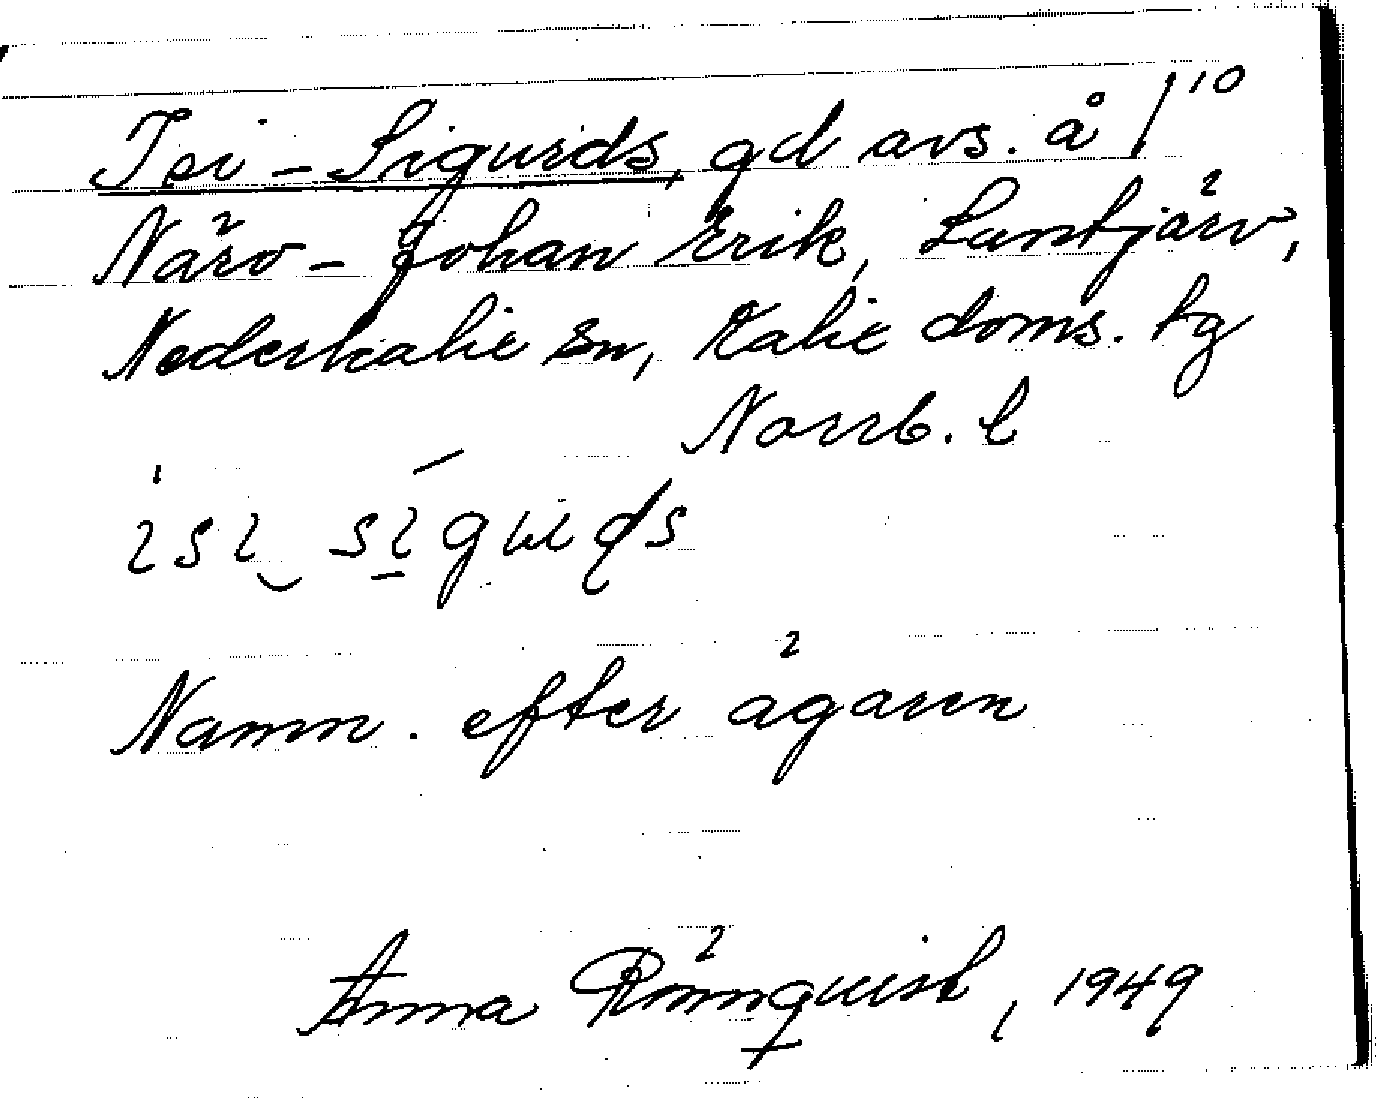 Isi-Sigurds, gd avs. å /10
Närv-Johan Erik, Lantjärv,
Nederkalix sn, Kalix doms. tg
Norrb. l
Namn. efter ägaren
Anna Rönnquist, 1949